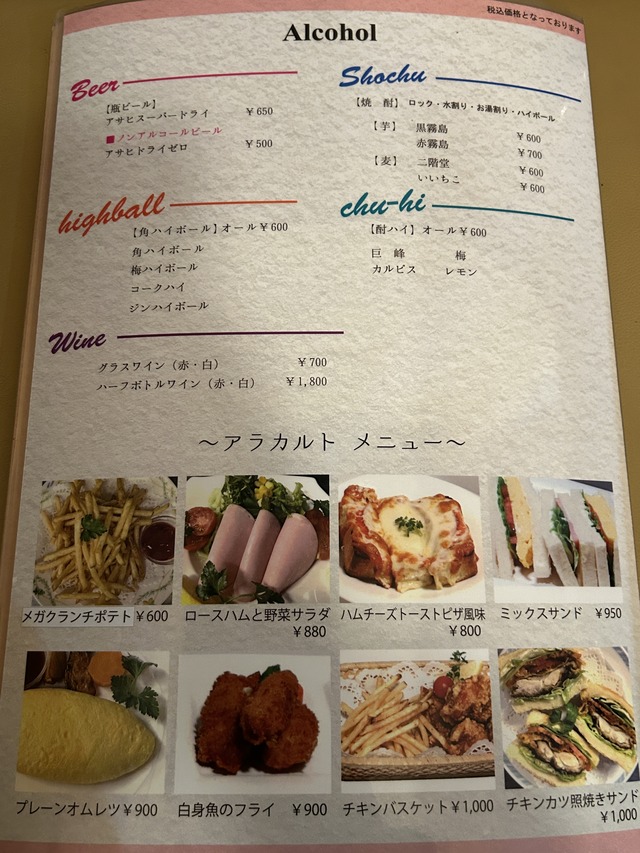 税込価格となっております
Alcohol
Beer
【瓶ビール】
アサヒスーパードライ ￥650
■ノンアルコールビール
アサヒドライゼロ ￥500
Shochu
【焼 酎】 ロック・水割り・お湯割り・ハイボール
【芋】 黒霧島 ￥600
赤霧島 ￥700
【麦】 二階堂 ￥600
いいちこ ￥600
highball
【角ハイボール】オール￥600
角ハイボール
梅ハイボール
コークハイ
ジンハイボール
chu-hi
【酎ハイ】オール￥600
巨 峰 梅
カルピス レモン
Wine
グラスワイン（赤・白） ￥700
ハーフボトルワイン（赤・白） ￥1,800
～アラカルト メニュー～
メガクランチポテト ￥600
ロースハムと野菜サラダ
￥880
ハムチーズトーストピザ風味
￥800
ミックスサンド ￥950
プレーンオムレツ ￥900
白身魚のフライ ￥900
チキンバスケット ￥1,000
チキンカツ照焼きサンド
￥1,000